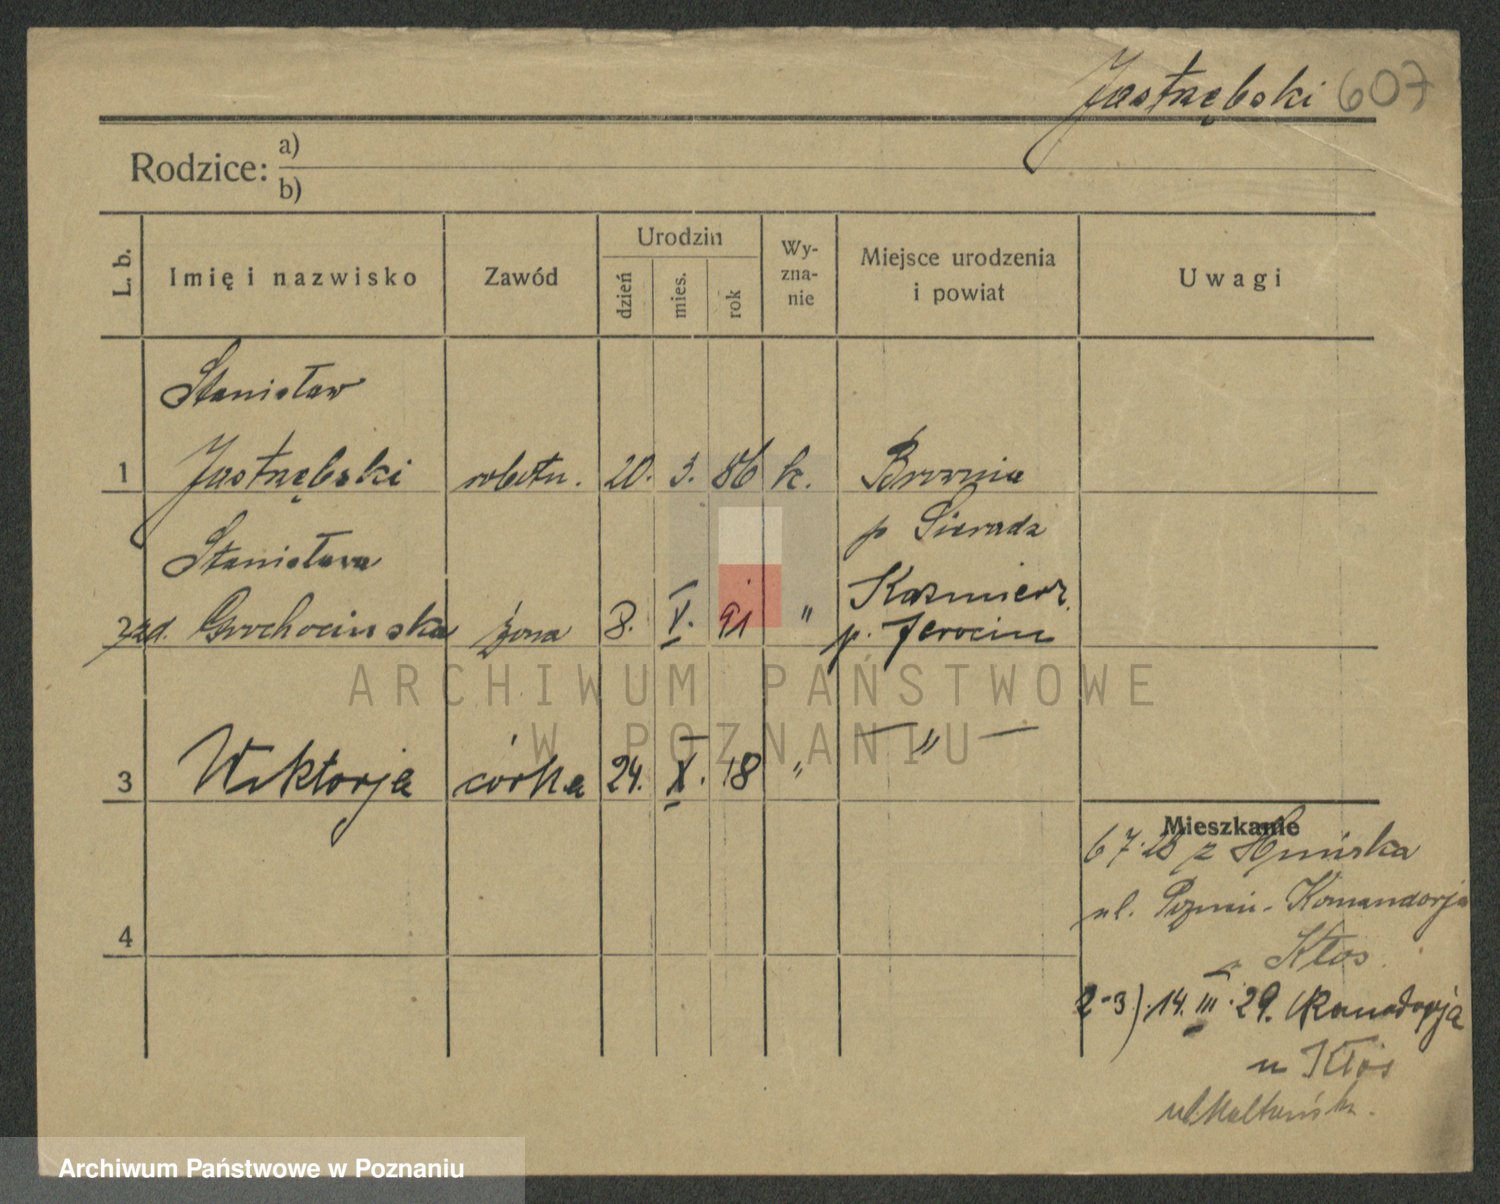 Jastrzębski 607
Rodzice: a)
b)
L. b.
Imię i nazwisko
Zawód
Urodzin
dzień
mies.
rok
Wy-
zna-
nie
Miejsce urodzenia
i powiat
Uwagi
Stanisław
1 Jastrzębski robotn. 20. 3. 86 k.
p Sieradz
Stanisława
2 zd. Grochocinska żona 8. V. 91 "
Kazmierz
p. Jarocin
3 Wiktorja córka 24. X. 18 " — " —
4
Mieszkanie
6 7. 28 z
ul. Komandorja
Kłos
2-3). 14. III. 29. Komandorja
u Kłos
ARCHIWUM PAŃSTWOWE
W POZNANIU
Archiwum Państwowe w Poznaniu